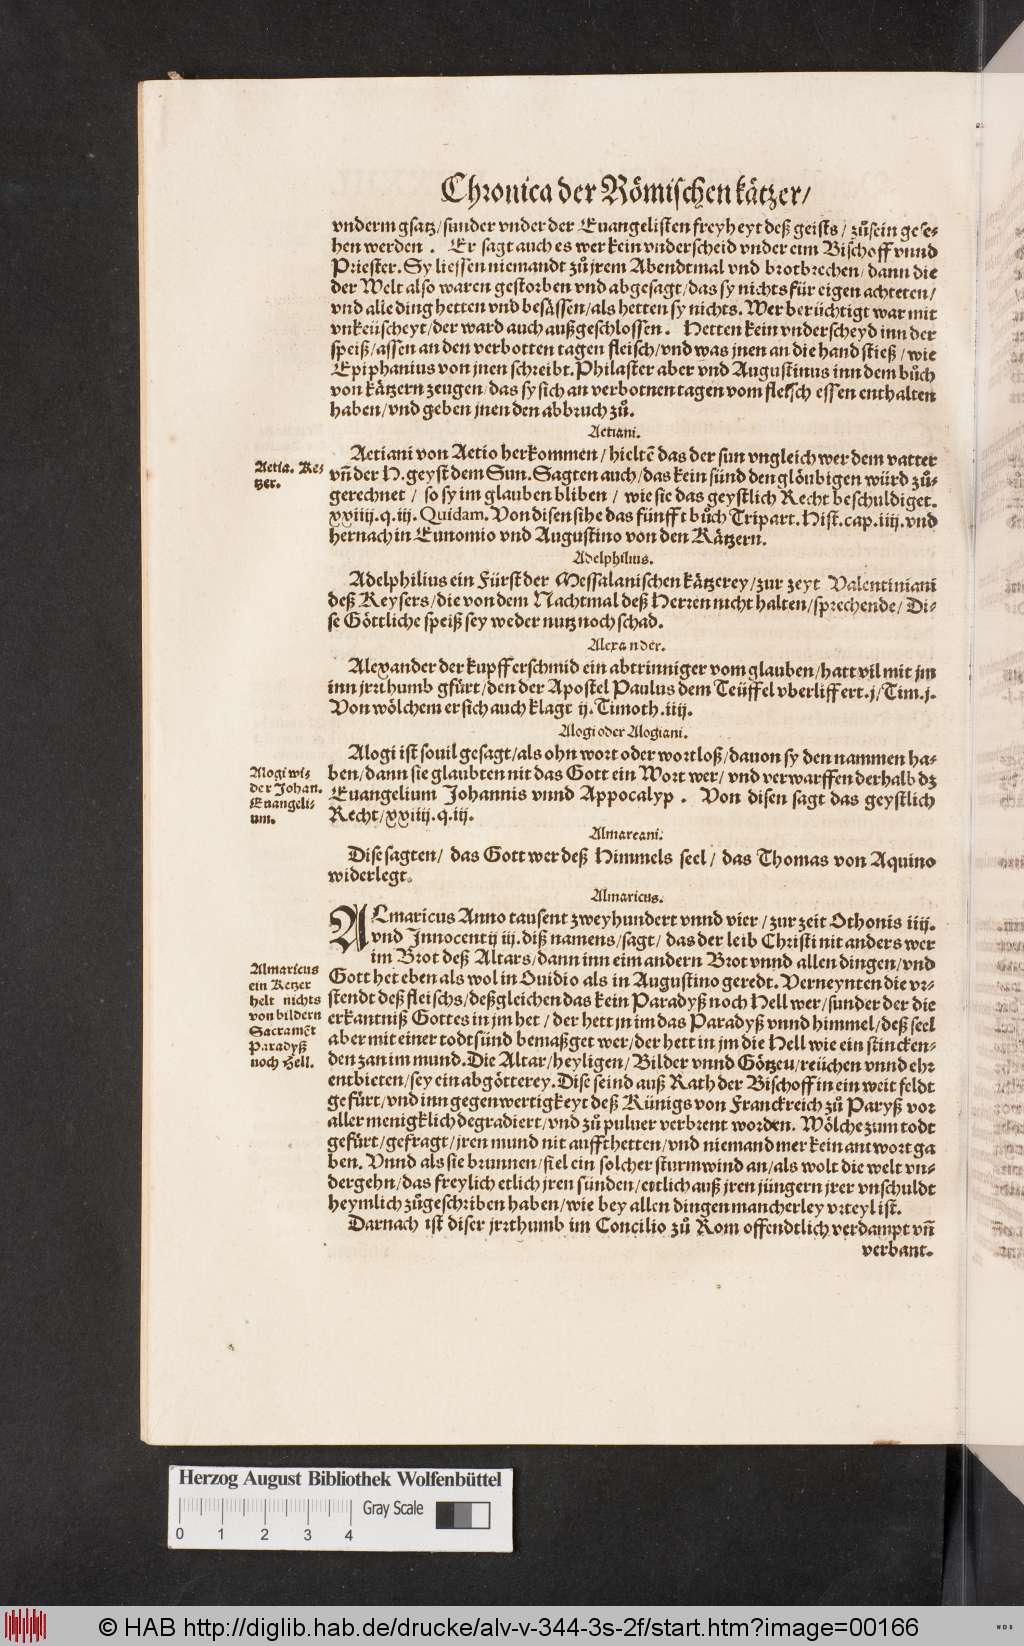 Chronica der Römischen kätzer/
vnderm gsatz/sunder vnder der Euangelisten freyheyt deß geists/ zůsein gese-
hen werden . Er sagt auch es wer kein vnderscheid vnder eim Bischoff vnnd
Priester. Sy liessen niemandt zů jrem Abendtmal vnd brotbrechen/ dann die
der Welt also waren gestorben vnd abgesagt/das sy nichts für eigen achteten/
vnd alle ding hetten vnd besässen/als hetten sy nichts. Wer berüchtigt war mit
vnkeüscheyt/der ward auch außgeschlossen. Hetten kein vnderscheyd inn der
speiß/assen an den verbotten tagen fleisch/vnd was jnen an die hand stieß/wie
Epiphanius von jnen schreibt. Philaster aber vnd Augustinus inn dem bůch
von kätzern zeugen/das sy sich an verbotnen tagen vom fleisch essen enthalten
haben/vnd geben jnen den abbruch zů.
Aetiani.
Aetia. Ket
zer.
Aetiani von Aetio herkommen/hieltẽ das der sun vngleich wer dem vatter
vñ der H. geyst dem Sun. Sagten auch/das kein sünd den glöubigen würd zů-
gerechnet/ so sy im glauben bliben/ wie sie das geystlich Recht beschuldiget.
xxiiij.q.iij. Quidam. Von disen sihe das fünfft bůch Tripart. Hist. cap. iiij. vnd
hernach in Eunomio vnd Augustino von den Kätzern.
Adelphilius.
Adelphilius ein Fürst der Messalanischen kätzerey/zur zeyt Valentiniani
deß Keysers/die von dem Nachtmal deß Herren nicht halten/sprechende/ Di-
se Göttliche speiß sey weder nutz noch schad.
Alexander.
Alexander der kupfferschmid ein abtrinniger vom glauben/hatt vil mit jm
inn jrrthumb gfürt/den der Apostel Paulus dem Teüffel vberliffert.j/Tim.j.
Von wölchem er sich auch klagt ij. Timoth. iiij.
Alogi oder Alogiani.
Alogi wi-
der Johan.
Euangeli-
um.
Alogi ist souil gesagt/als ohn wort oder wortloß/dauon sy den nammen ha-
ben/dann sie glaubten nit das Gott ein Wort wer/ vnd verwarffen derhalb dz
Euangelium Johannis vnnd Appocalyp . Von disen sagt das geystlich
Recht/xxiiij.q.iij.
Almareani.
Dise sagten/ das Gott wer deß Himmels seel/ das Thomas von Aquino
widerlegt.
Almaricus.
ALmaricus Anno tausent zweyhundert vnnd vier/zur zeit Othonis iiij.
vnd Innocentij iij. diß namens/sagt/ das der leib Christi nit anders wer
im Brot deß Altars/dann inn eim andern Brot vnnd allen dingen/vnd
Almaricus
ein Ketzer
helt nichts
von bildern
Sacramẽt
Paradyß
noch Hell.
Gott het eben als wol in Ouidio als in Augustino geredt. Verneynten die vr-
stendt deß fleischs/deßgleichen das kein Paradyß noch Hell wer/sunder der die
erkantniß Gottes in jm het/ der hett jn im das Paradyß vnnd himmel/deß seel
aber mit einer todtsünd bemaßget wer/der hett in jm die Hell wie ein stincken-
den zan im mund. Die Altar/heyligen/ Bilder vnnd Götzeu/reüchen vnnd ehr
entbieten/sey ein abgötterey. Dise seind auß Rath der Bischoff in ein weit feldt
gefürt/vnd inn gegenwertigkeyt deß Künigs von Franckreich zů Paryß vor
aller menigklich degradiert/vnd zů puluer verbrent worden. Wölche zum todt
gefürt/gefragt/jren mund nit auffthetten/vnd niemand mer kein antwort ga
ben. Vnnd als sie brunnen/fiel ein solcher sturmwind an/als wolt die welt vn-
dergehn/das freylich etlich jren sünden/etlich auß jren jüngern jrer vnschuldt
heymlich zůgeschriben haben/wie bey allen dingen mancherley vrteyl ist.
Darnach ist diser jrrthumb im Concilio zů Rom offendtlich verdampt vñ
verbant.
Herzog August Bibliothek Wolfenbüttel
Gray Scale
0 1 2 3 4
© HAB http://diglib.hab.de/drucke/alv-v-344-3s-2f/start.htm?image=00166